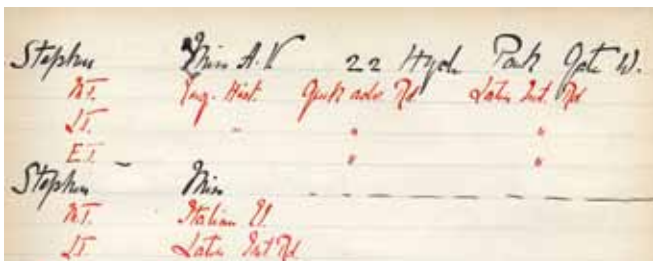 Stephen Miss A. V 22 Hyde Park Gate W.
M.T. Eng. Hist. Greek adv. Rd Latin Int. Rd
L.T. " " "
E.T. " "
Stephen Miss
M.T. Italian El.
L.T. Latin Int Rd